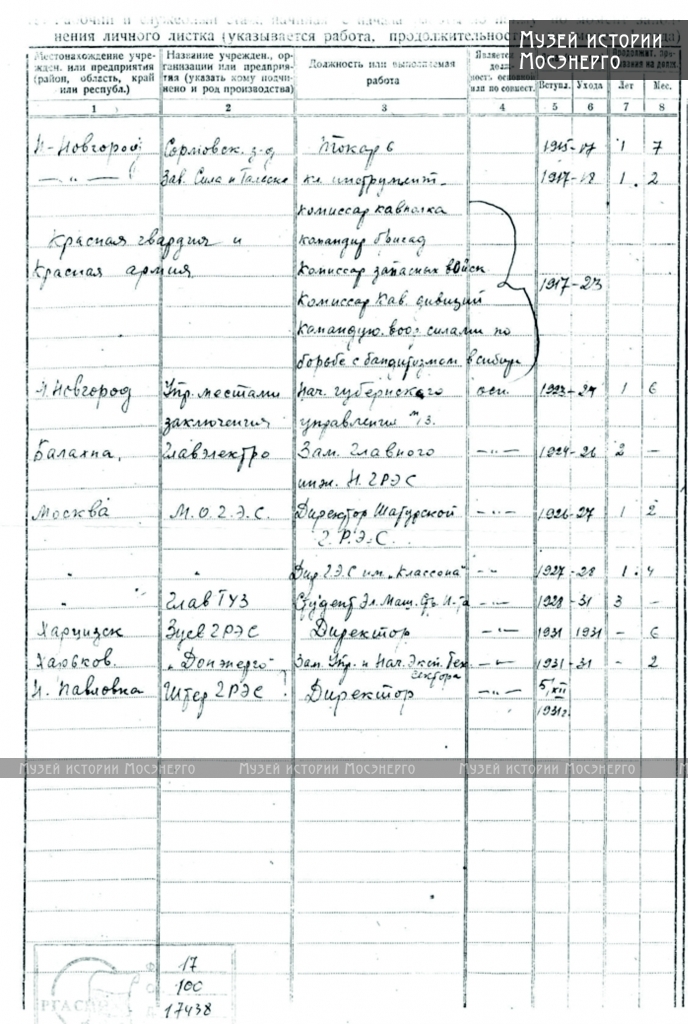 нения личного листка (указывается работа, продолжительность
Музей истории
Мосэнерго
Местонахождение учре- Название учрежден., ор- Должность или выполняемая Является
жден. или предприятия ганизации или предприя- работа долж-
(район, область, край тия (указать кому подчи- ность основной
или республ.) нено и род производства) или по совмест. Вступл. Ухода Лет Мес.
1 2 3 4 5 6 7 8
Н-Новгород Сормовск. з-д Токарь 1915-17 1 7
—„— Зав. Сила и кл. инструмент. 1917-18 1. 2
комиссар кавполка
Красная гвардия и командир бригад
Красная армия Комиссар запасных войск
1917-23
Комиссар Кав. дивизий
командую. воор. силами по
борьбе с бандитизмом в сибири
Н. Новгород Упр. местами Нач. губернского осн. 1923-24 1 6
заключения управления м/з.
Балахна, Главэлектро Зам. Главного —„— 1924-26 2 —
инж. Н. ГРЭС
Москва М.О.Г.Э.С. Директор Шатурской —„— 1926-27 1 2
Г.Р.Э.С.
„ „ Дир ГЭС им. „Классона" —„— 1927-28 1. 4
„ Глав ТУЗ Студент Эл. Маш. Стр. И-та —„— 1928-31 3 —
Харцизск Зуев ГРЭС Директор —„— 1931 1931 — 6
Харьков. „Донэнерго" Зам. Упр. и Нач. Эксп. Тех. —„— 1931-31 — 2
сектора
Н. Павловка Штер ГРЭС Директор —„— 5/XII
1931г.
Музей истории Мосэнерго Музей истории Мосэнерго Музей истории Мосэнерго
17
100
РГАСПИ
17438